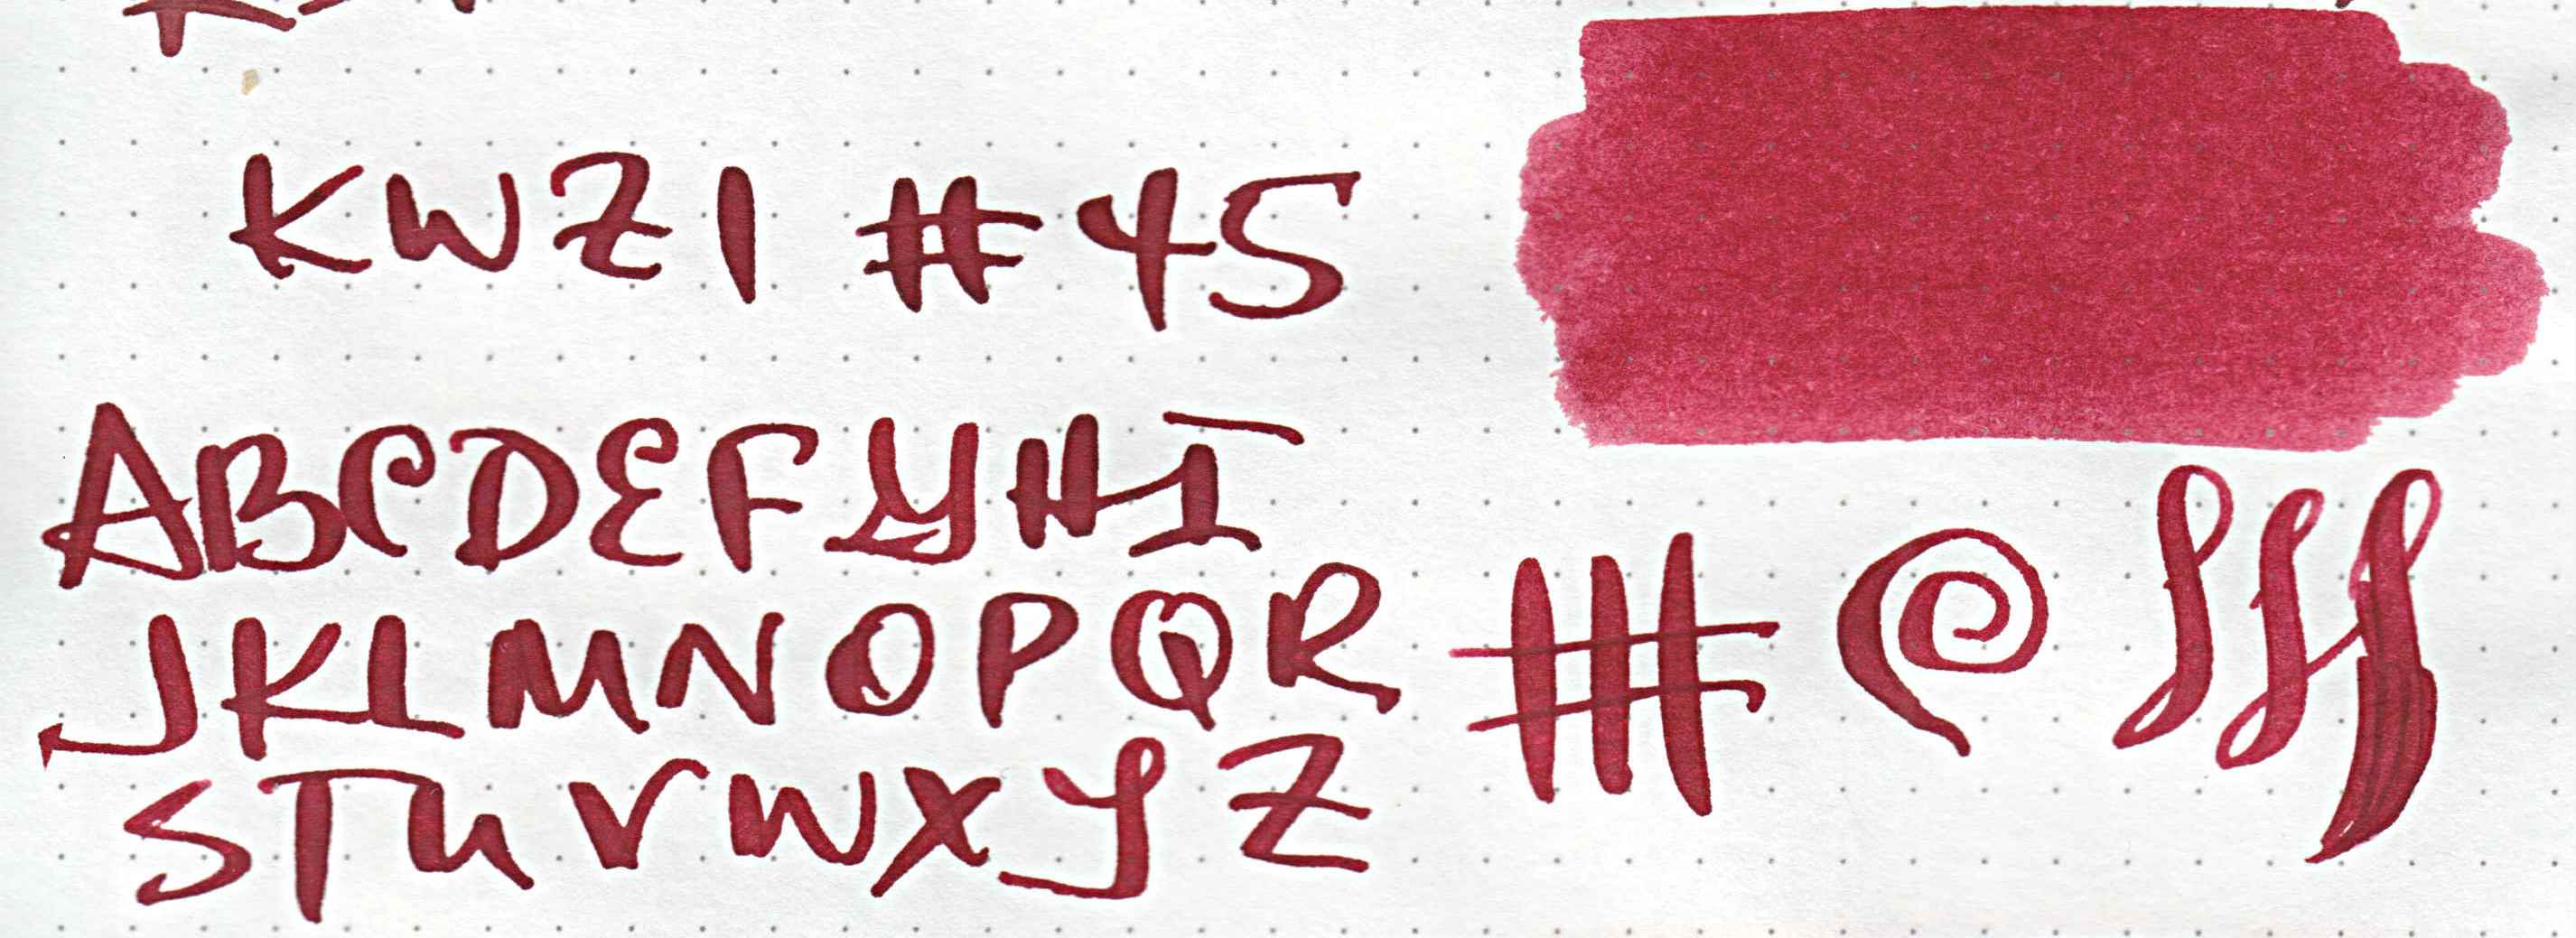 KWZI #45
ABCDEFGHI
JKLMNOPQR
STUVWXYZ